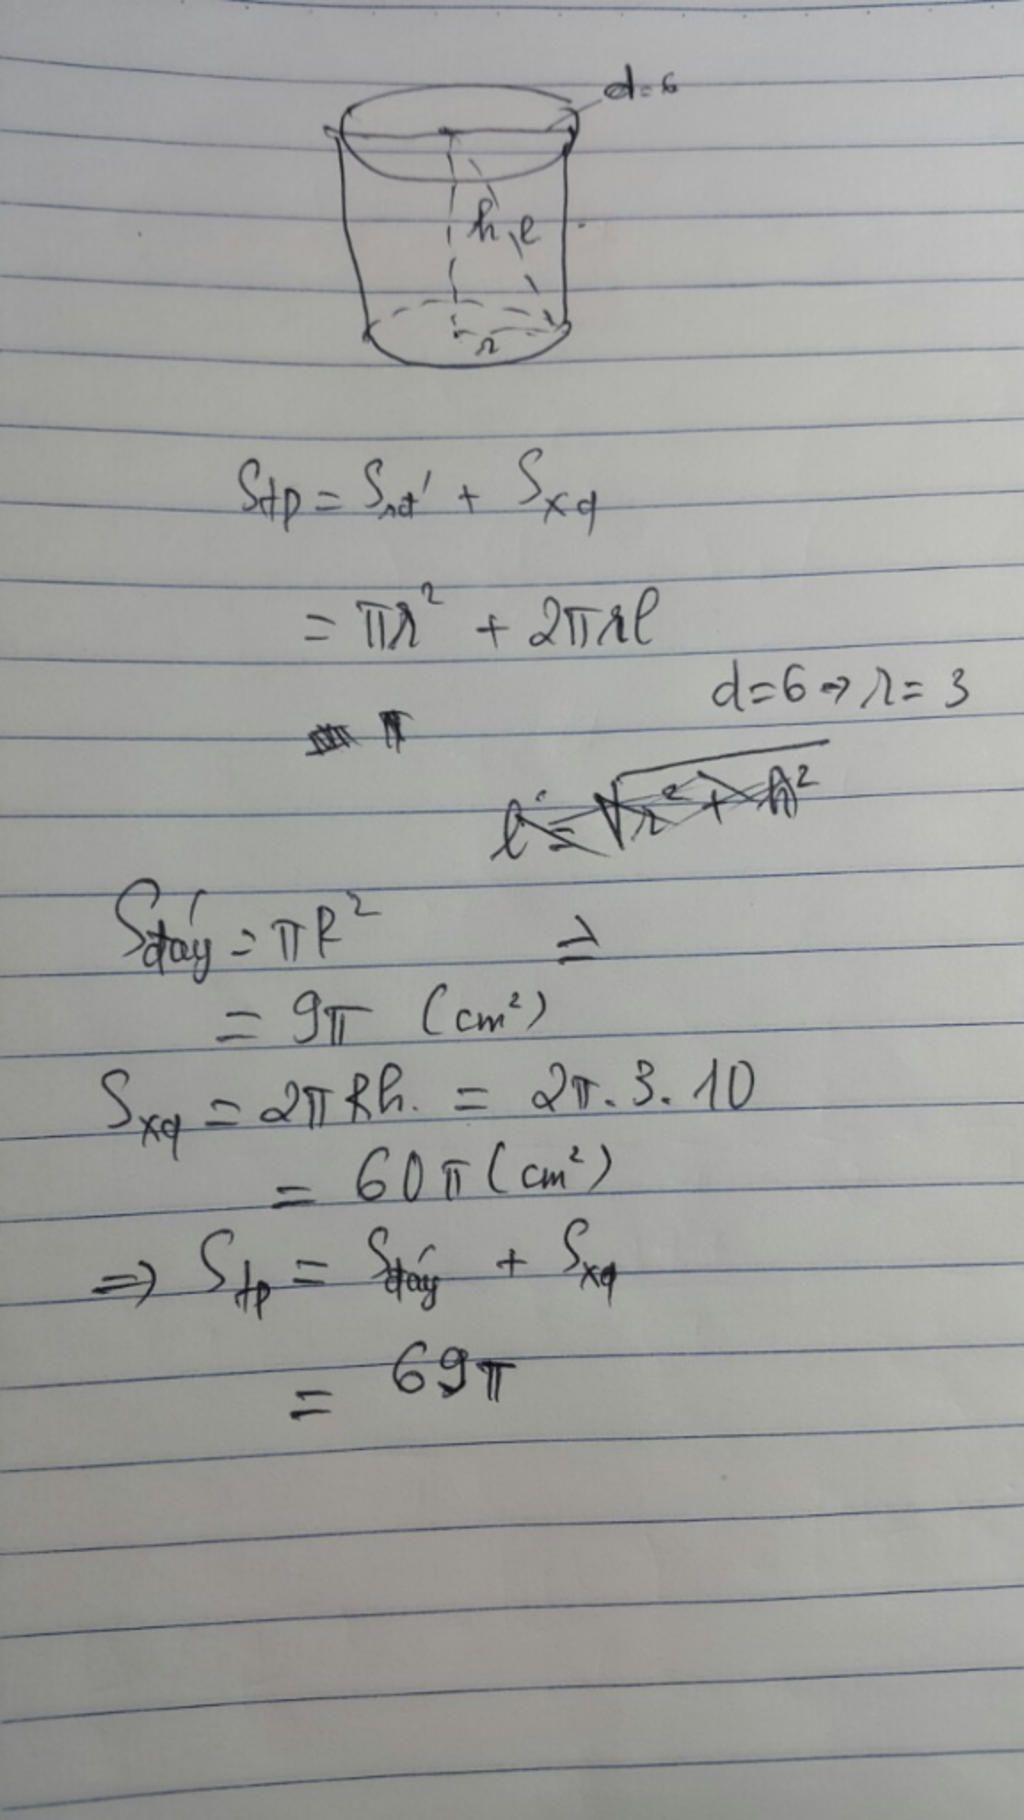 d=6
h l
r
Stp = Snđ' + Sxq
= πr² + 2πrl
d=6 → r = 3
π
l = √r² + h²
Sđáy = πR² ⇒
= 9π (cm²)
Sxq = 2πRh. = 2π.3.10
= 60π (cm²)
⇒ Stp = Sđáy + Sxq
= 69π